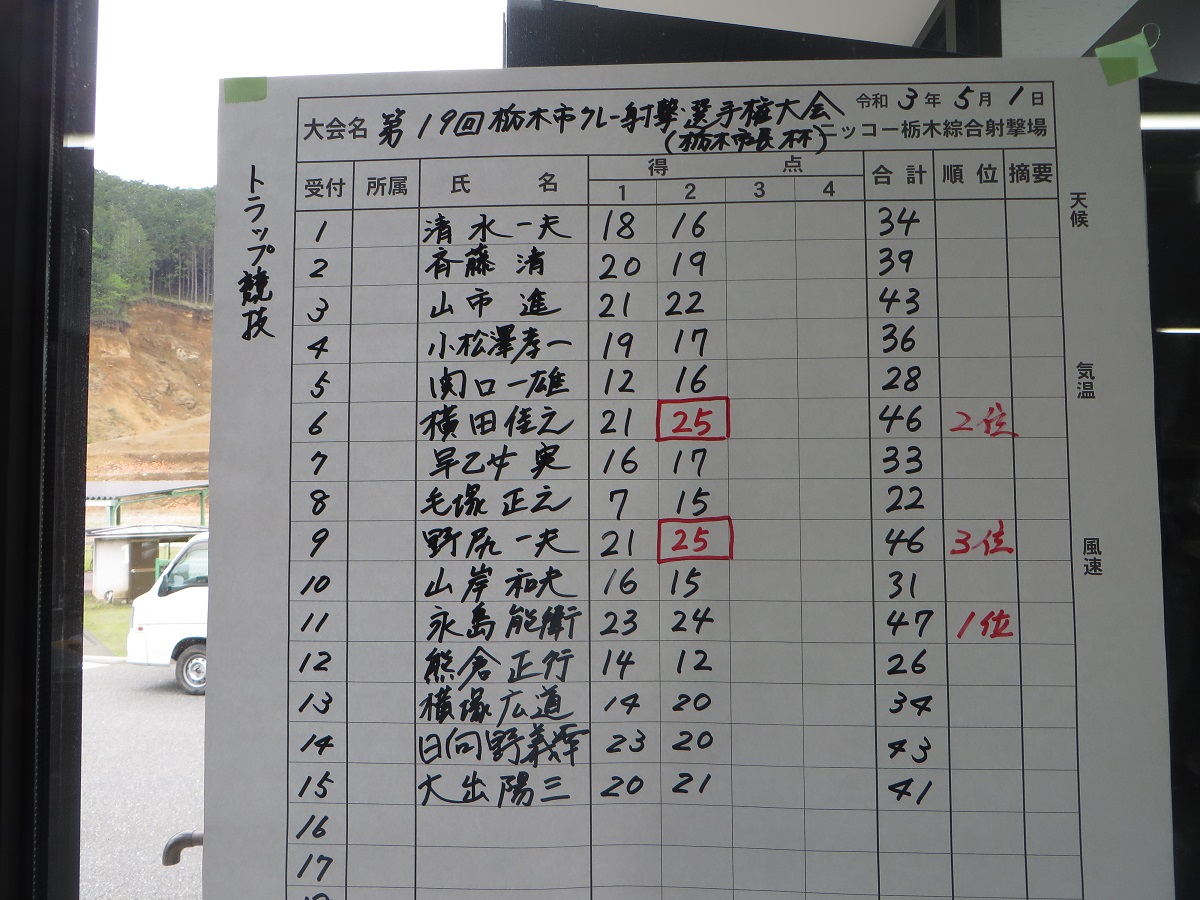 令和 3 年 5 月 1 日
大会名 第19回栃木市クレー射撃選手権大会
(栃木市長杯) ニッコー栃木綜合射撃場
トラップ競技
受付 所属 氏名 得点 合計 順位 摘要
1 2 3 4
1 清水一夫 18 16 34
2 斉藤清 20 19 39
3 山市進 21 22 43
4 小松澤孝一 19 17 36
5 関口一雄 12 16 28
6 横田佳之 21 25 46 2位
7 早乙女実 16 17 33
8 毛塚正之 7 15 22
9 野尻一夫 21 25 46 3位
10 山岸和夫 16 15 31
11 永島能衛 23 24 47 1位
12 熊倉正行 14 12 26
13 横塚広道 14 20 34
14 日向野義幸 23 20 43
15 大出陽三 20 21 41
16
17
天候
気温
風速